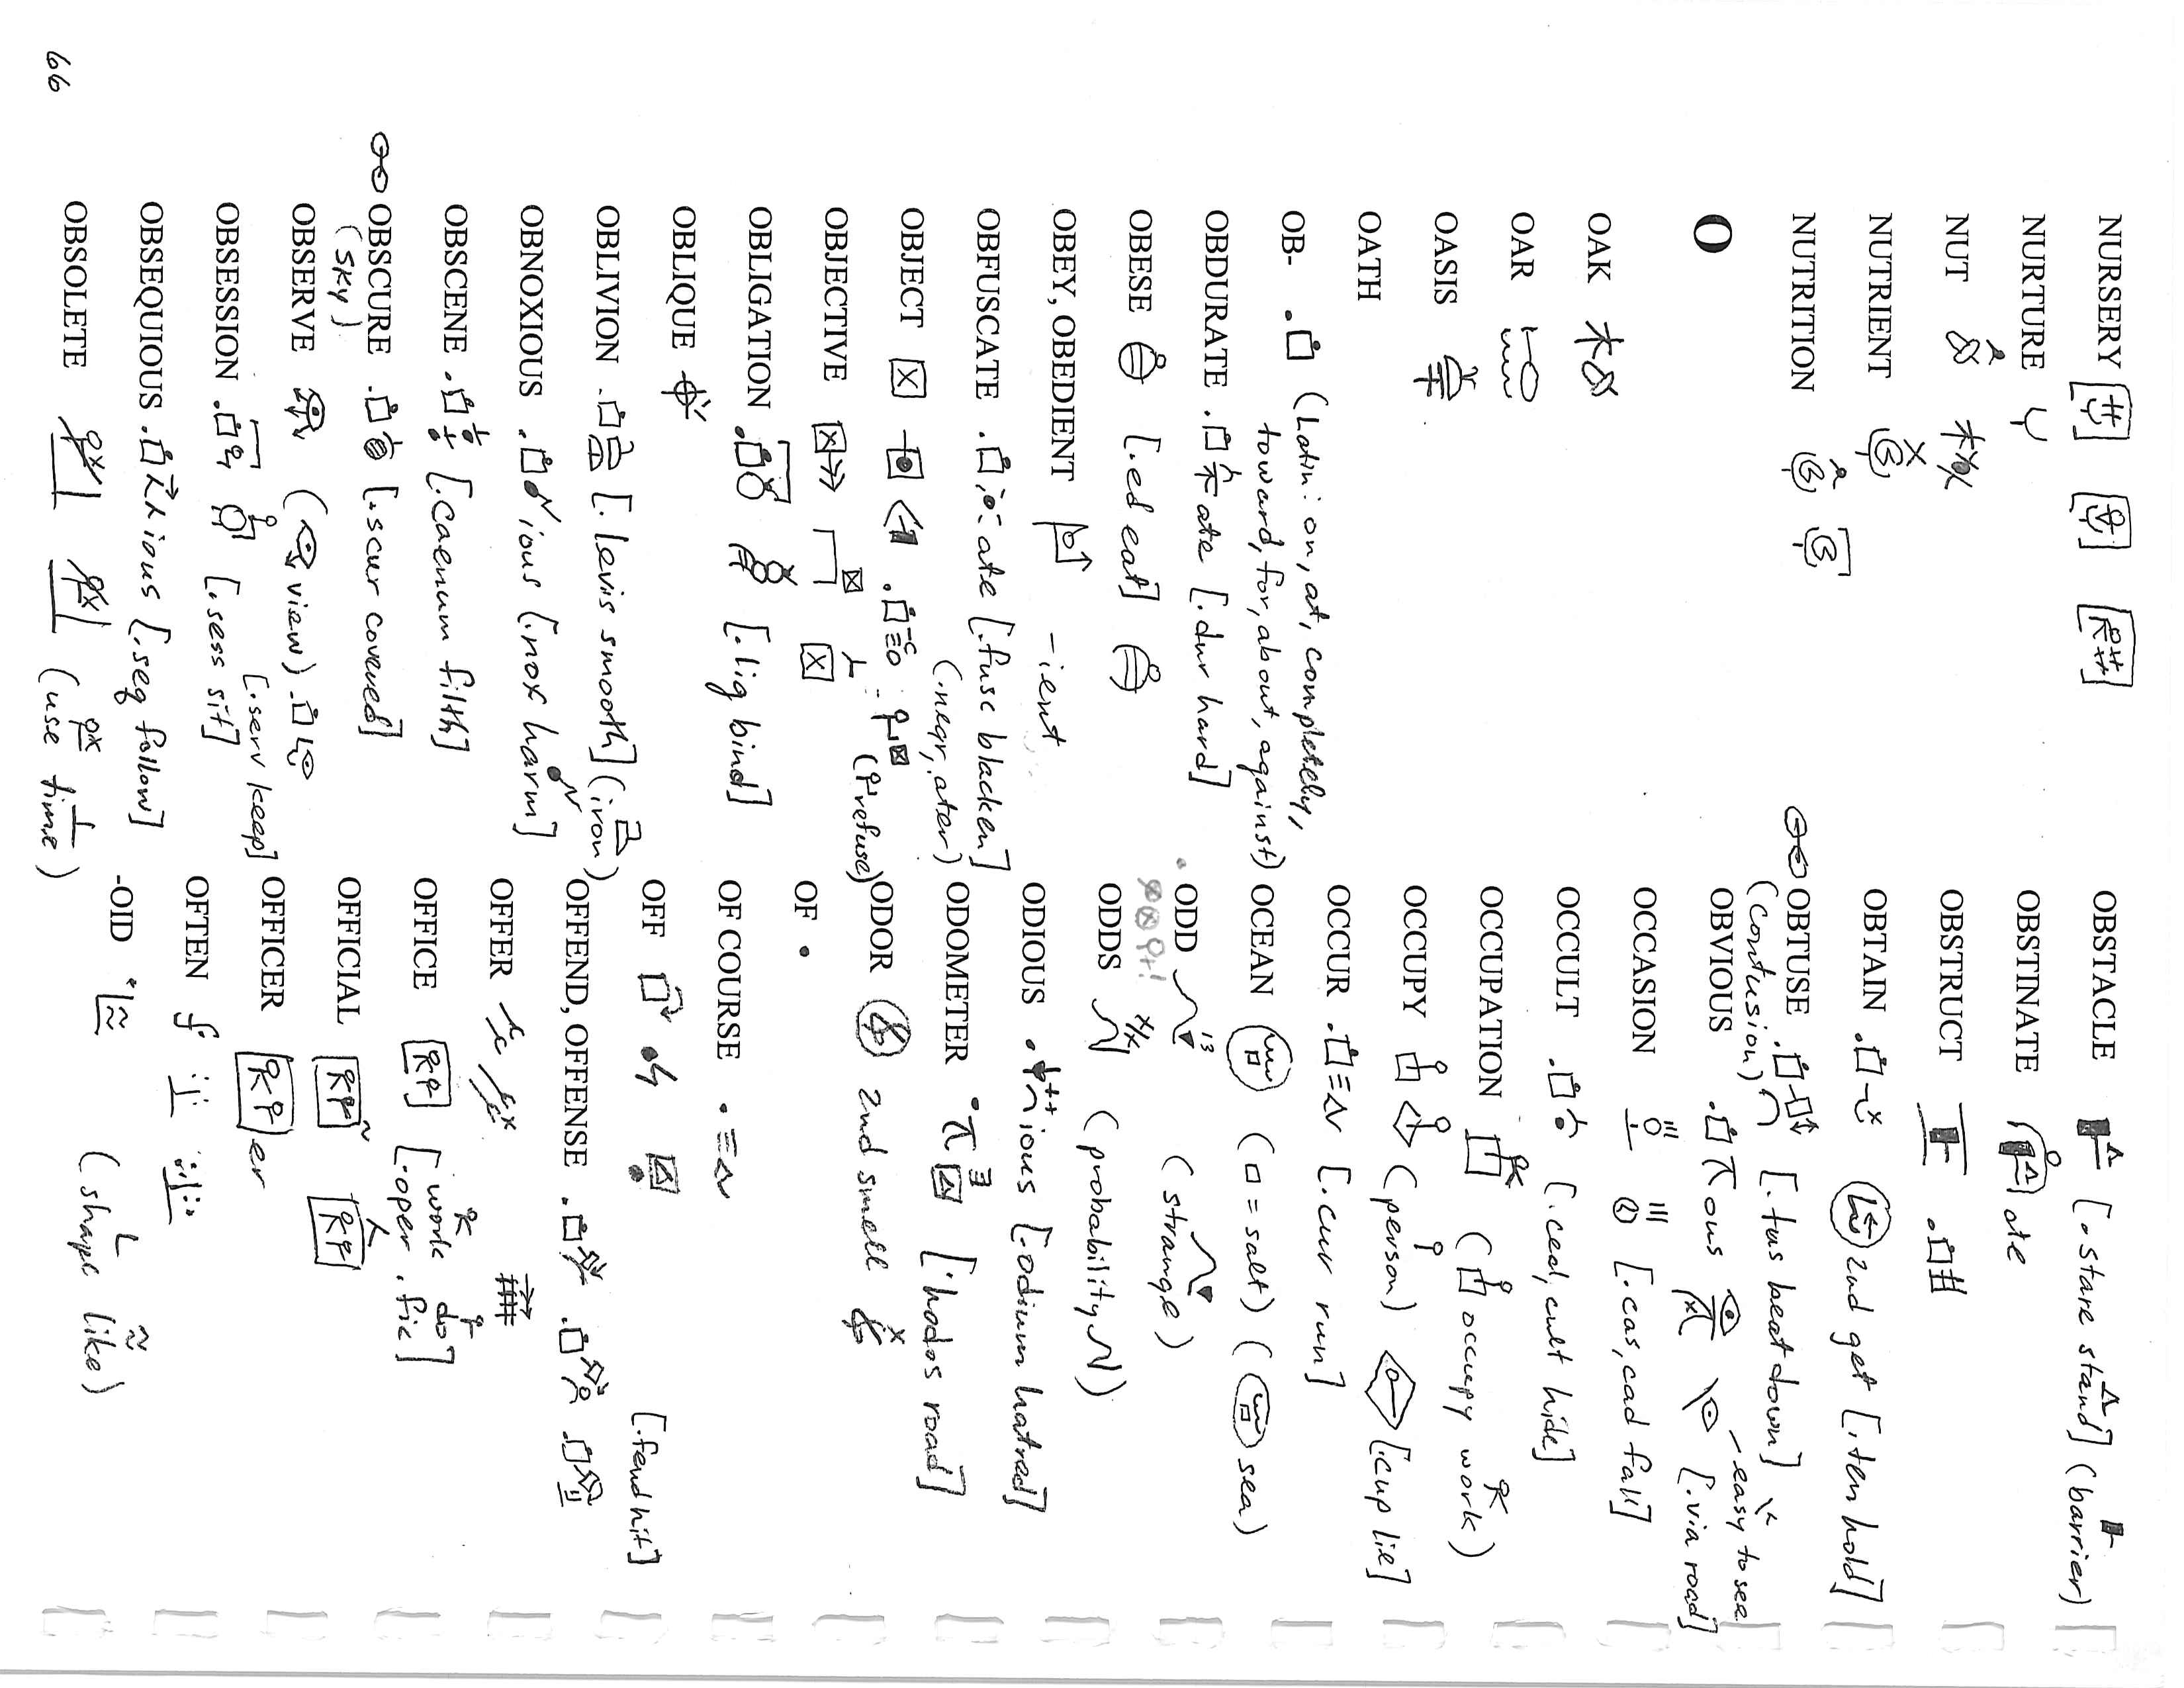 NURSERY
NURTURE
NUT
NUTRIENT
NUTRITION
O
OAK
OAR
OASIS
OATH
OB- (Latin: on, at, completely,
toward, for, about, against)
OBDURATE ate [.dur hard]
OBESE [.ed eat]
OBEY, OBEDIENT -ient
OBFUSCATE ate [.fusc blacken]
(.negr, .ater)
OBJECT
(refuse)
OBJECTIVE
OBLIGATION [.lig bind]
OBLIQUE
OBLIVION [.levis smooth] (iron)
OBNOXIOUS ious [.nox harm]
OBSCENE [.caenum filth]
OBSCURE [.scur covered]
(sky)
OBSERVE (view)
[.serv keep]
OBSESSION [.sess sit]
OBSEQUIOUS ious [.seq follow]
OBSOLETE (use time)
66
OBSTACLE [.stare stand] (barrier)
OBSTINATE ate
OBSTRUCT
OBTAIN 2nd get [.ten hold]
OBTUSE [.tus beat down]
(contusion)
- easy to see
OBVIOUS ous [.via road]
OCCASION [.cas, cad fall]
OCCULT [.cel, cult hide]
OCCUPATION (occupy work)
OCCUPY (person) [.cup lie]
OCCUR [.cur run]
OCEAN (□ = salt) (sea)
ODD 13 (strange)
ODDS x/x (probability)
ODIOUS ++ ious [.odium hatred]
ODOMETER 3 [.hodos road]
ODOR 2nd smell
OF .
OF COURSE
OFF
[.fend hit]
OFFEND, OFFENSE
OFFER
OFFICE [work do
.oper .fic]
OFFICIAL
OFFICER er
OFTEN
-OID (shape like)